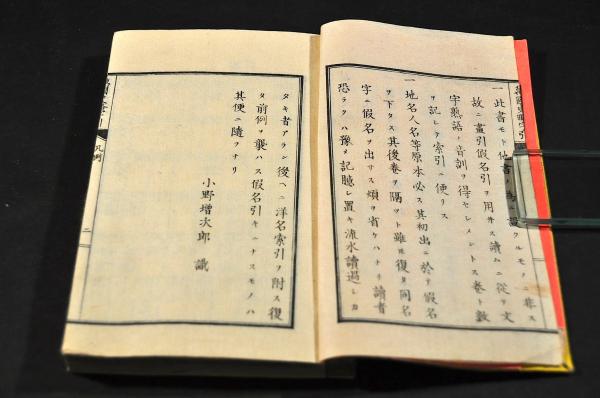 一此書モト他書ノ為ニ設クルモノニ非ス
故ニ畫引假名引ヲ用ヰス讀ムニ從ヲ文
字熟語ノ音訓ヲ得セシメントス巻ト數
ヲ記シテ索引ニ便リス
一地名人名等原本必ス其初出ニ於テ假名
ヲ下タス其後巻ヲ隔ツト雖ㇳ復タ同名
字ニ假名ヲ出サス煩ヲ省ケハナリ讀者
恐ラクハ豫メ記聴シ置キ流水讀過シカ
タキ者アラン後ヘニ洋名索引ヲ附ス復
タ前例ヲ襲ハス假名引キニナスモノハ
其便ニ隨フナリ
小野增次郎 識
凡例
二